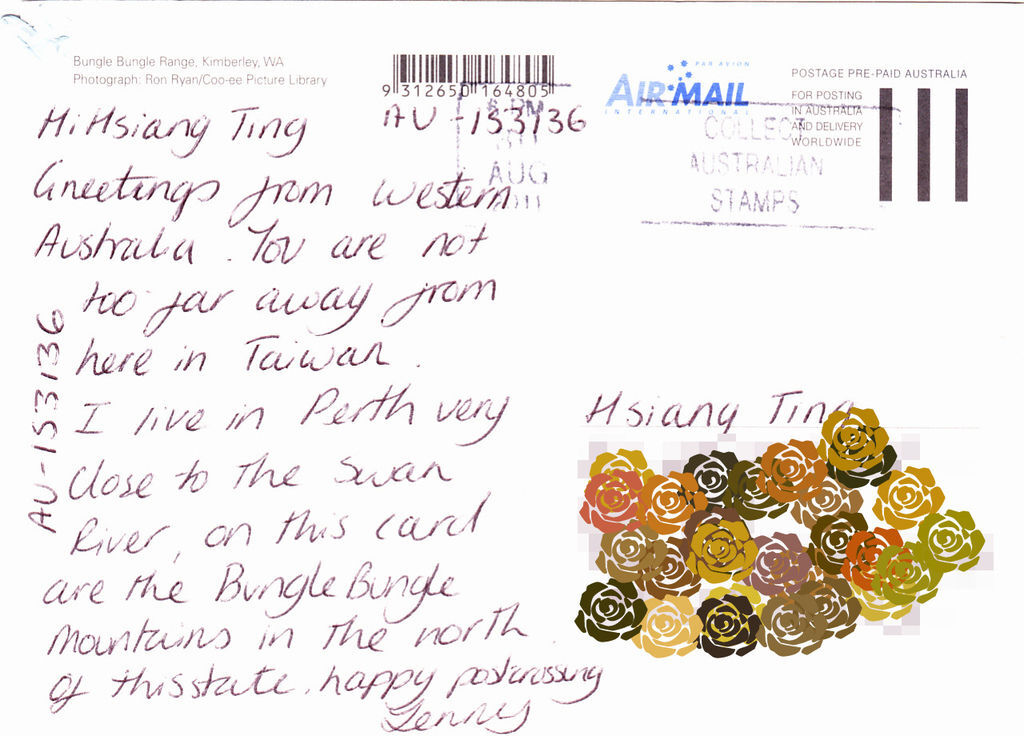 Bungle Bungle Range, Kimberley, WA
Photograph: Ron Ryan/Coo-ee Picture Library
9 312650 164805
PAR AVION
AIR MAIL
INTERNATIONAL
POSTAGE PRE-PAID AUSTRALIA
FOR POSTING
IN AUSTRALIA
AND DELIVERY
WORLDWIDE
6 PM
AUG
2011
COLLECT
AUSTRALIAN
STAMPS
AU-153136
Hi Hsiang Ting
Greetings from Western
Australia. You are not
too far away from
here in Taiwan.
I live in Perth very
Close to the Swan
River, on this card
are the Bungle Bungle
Mountains in the north
of this state. happy postcrossing
Jenny
AU-153136
Hsiang Ting